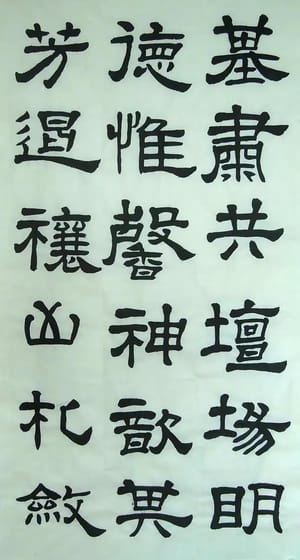 基肅共壇場明
德惟馨神歆其
芳遏禳凶札斂